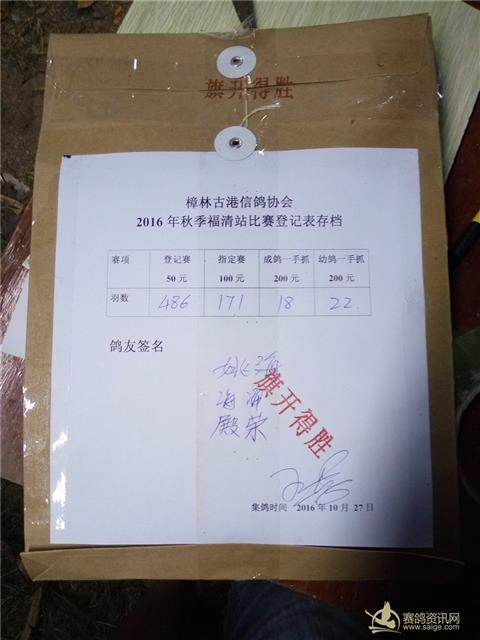 旗开得胜
樟林古港信鸽协会
2016年秋季福清站比赛登记表存档
赛项 登记赛 50元 指定赛 100元 成鸽一手抓 200元 幼鸽一手抓 200元
羽数 486 171 18 22
鸽友签名
旗开得胜
殿荣
集鸽时间 2016年10月27日
赛鸽资讯网
www.saige.com